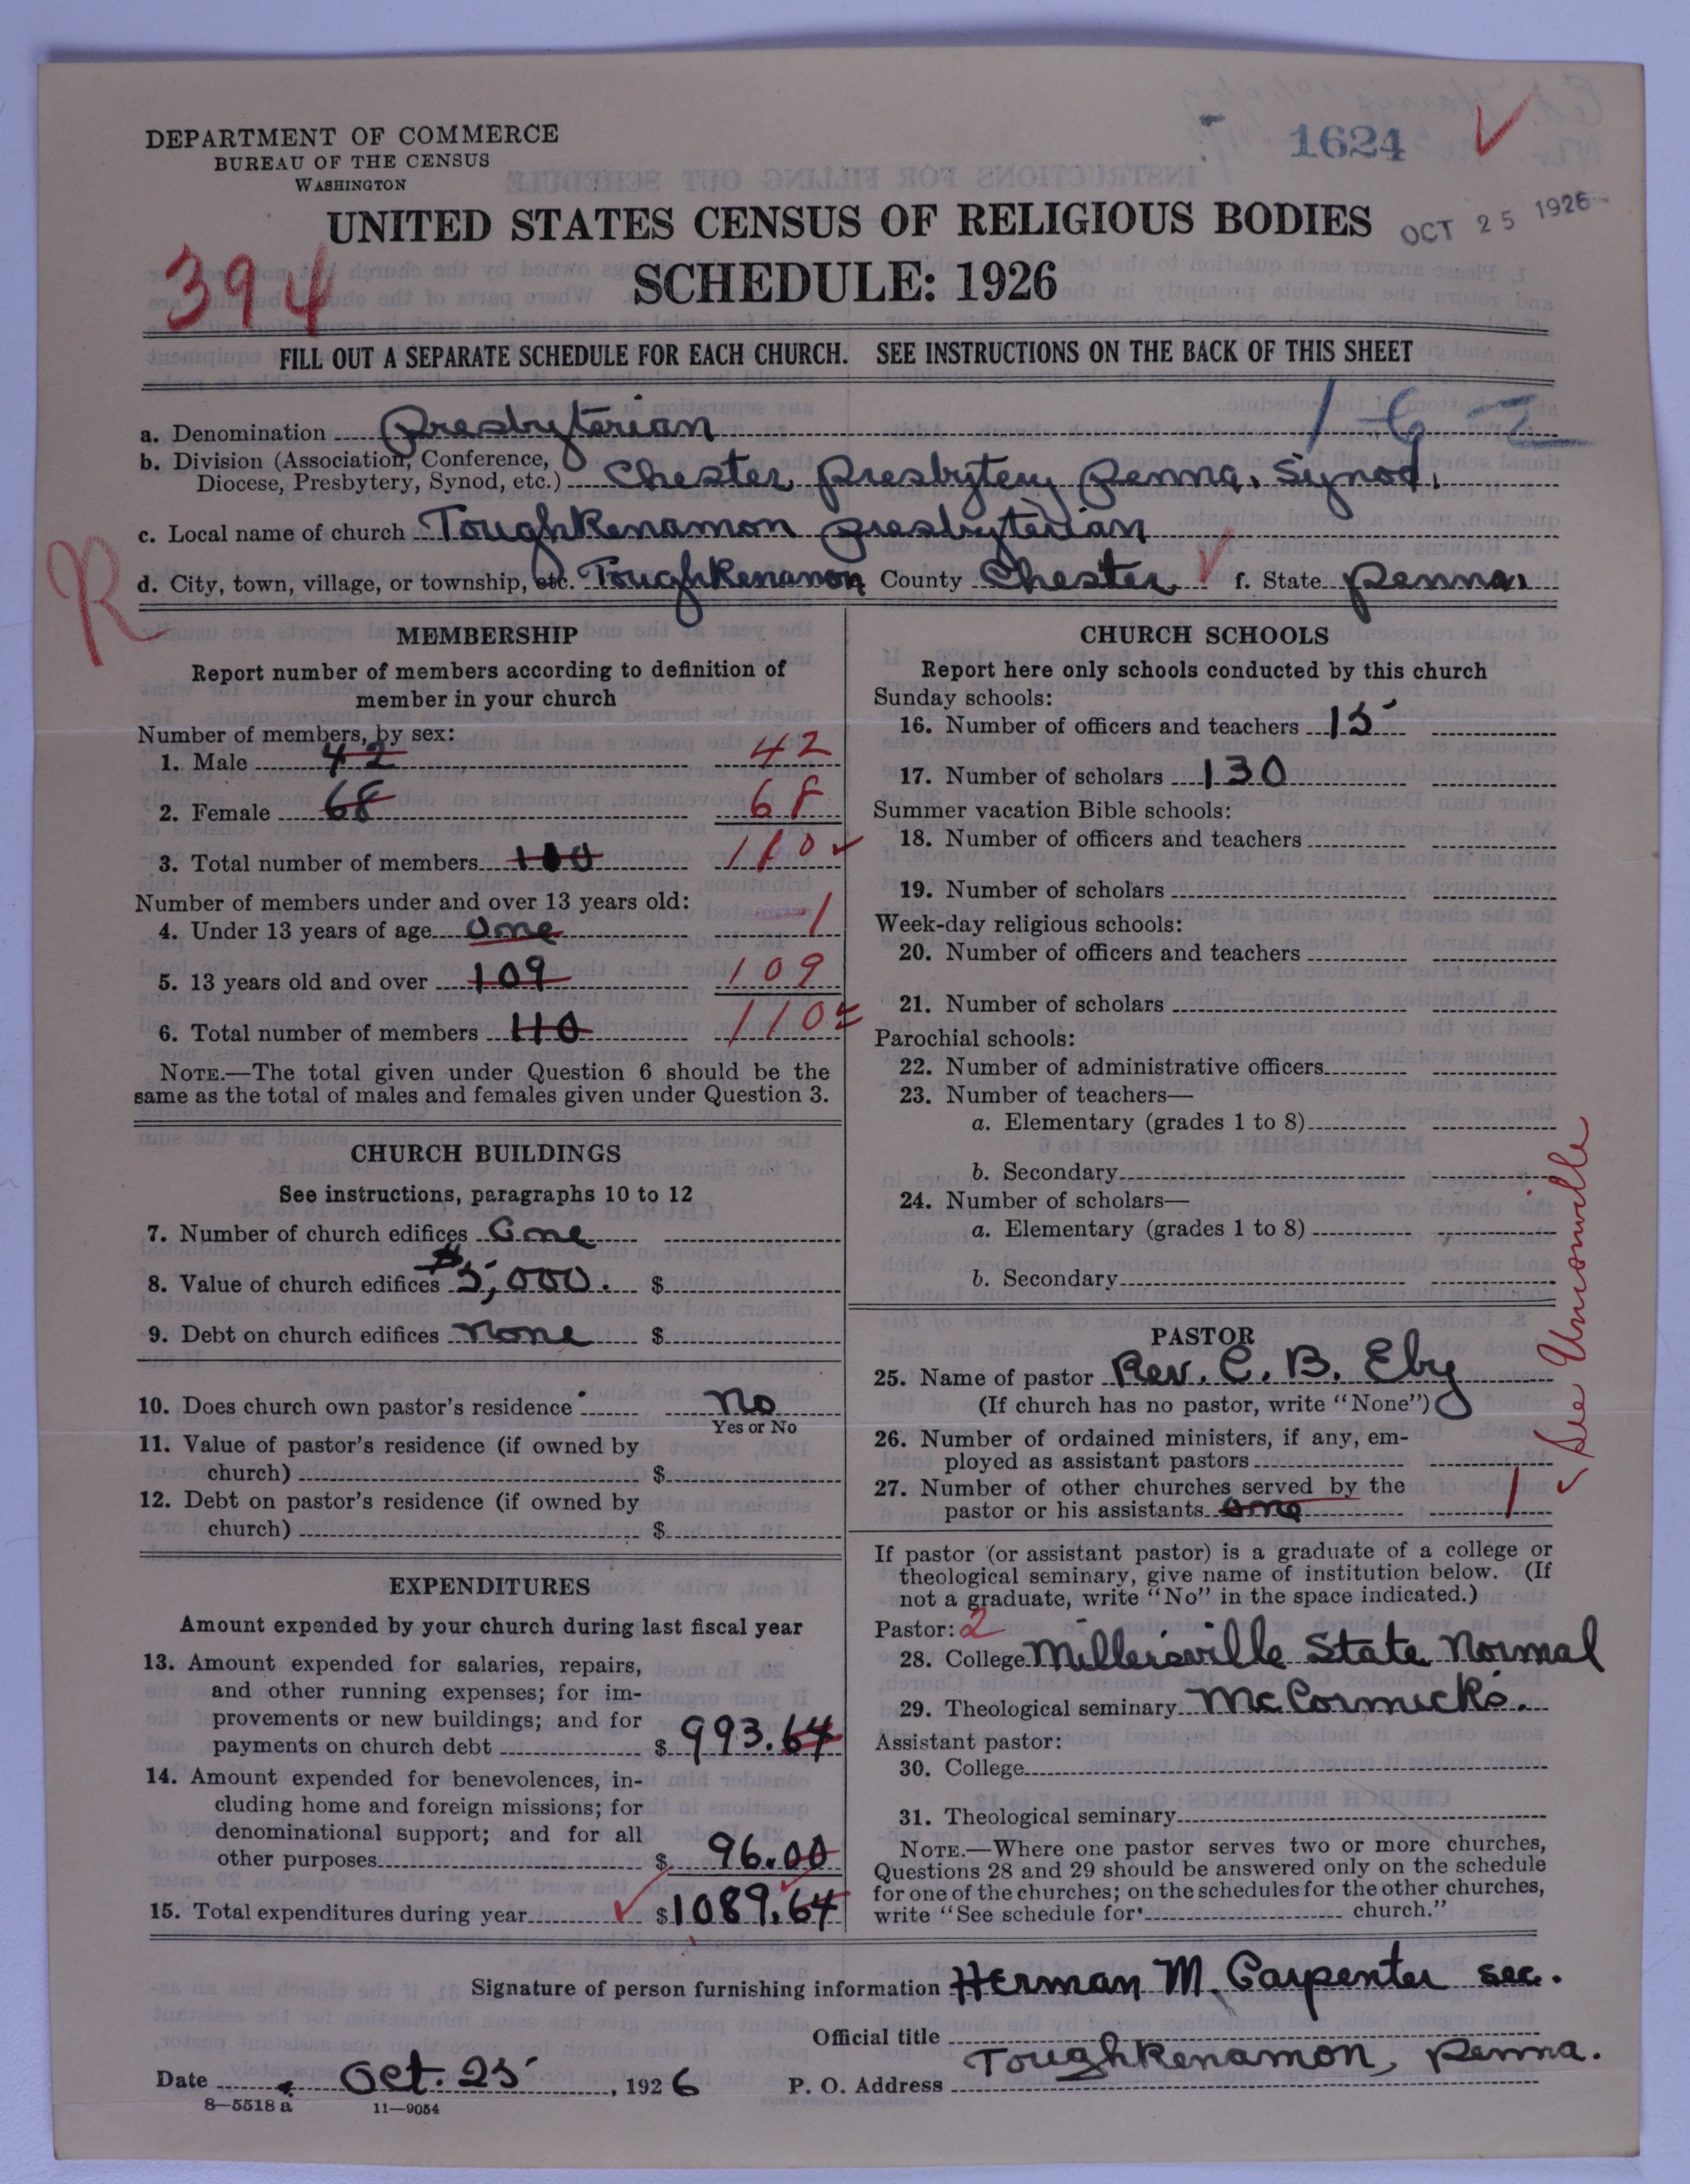 1624
DEPARTMENT OF COMMERCE
BUREAU OF THE CENSUS
WASHINGTON
UNITED STATES CENSUS OF RELIGIOUS BODIES
OCT 25 1926
394
SCHEDULE: 1926
FILL OUT A SEPARATE SCHEDULE FOR EACH CHURCH. SEE INSTRUCTIONS ON THE BACK OF THIS SHEET
1-6-2
a. Denomination Presbyterian
b. Division (Association, Conference,
Diocese, Presbytery, Synod, etc.) Chester Presbytery Penna. Synod.
c. Local name of church Toughkenamon Presbyterian
R
d. City, town, village, or township, etc. Toughkenamon County Chester f. State Penna.
MEMBERSHIP
Report number of members according to definition of
member in your church
Number of members, by sex:
1. Male 42 42
2. Female 68 68
3. Total number of members 110 110
Number of members under and over 13 years old:
4. Under 13 years of age One 1
5. 13 years old and over 109 109
6. Total number of members 110 110
NOTE.—The total given under Question 6 should be the
same as the total of males and females given under Question 3.
CHURCH BUILDINGS
See instructions, paragraphs 10 to 12
7. Number of church edifices One
8. Value of church edifices $5,000. $
9. Debt on church edifices None $
10. Does church own pastor's residence No
Yes or No
11. Value of pastor's residence (if owned by
church) $
12. Debt on pastor's residence (if owned by
church) $
EXPENDITURES
Amount expended by your church during last fiscal year
13. Amount expended for salaries, repairs,
and other running expenses; for im-
provements or new buildings; and for
payments on church debt $ 993.64
14. Amount expended for benevolences, in-
cluding home and foreign missions; for
denominational support; and for all
other purposes $ 96.00
15. Total expenditures during year $1089.64
CHURCH SCHOOLS
Report here only schools conducted by this church
Sunday schools:
16. Number of officers and teachers 15
17. Number of scholars 130
Summer vacation Bible schools:
18. Number of officers and teachers
19. Number of scholars
Week-day religious schools:
20. Number of officers and teachers
21. Number of scholars
Parochial schools:
22. Number of administrative officers
23. Number of teachers—
a. Elementary (grades 1 to 8)
b. Secondary
24. Number of scholars—
a. Elementary (grades 1 to 8)
b. Secondary
See Unionville
PASTOR
25. Name of pastor Rev. C. B. Eby
(If church has no pastor, write "None")
26. Number of ordained ministers, if any, em-
ployed as assistant pastors
27. Number of other churches served by the
pastor or his assistants One 1
If pastor (or assistant pastor) is a graduate of a college or
theological seminary, give name of institution below. (If
not a graduate, write "No" in the space indicated.)
Pastor: 2
28. College Millersville State Normal
29. Theological seminary McCormicks.
Assistant pastor:
30. College
31. Theological seminary
NOTE.—Where one pastor serves two or more churches,
Questions 28 and 29 should be answered only on the schedule
for one of the churches; on the schedules for the other churches,
write "See schedule for church."
Signature of person furnishing information Herman M. Carpenter sec.
Official title
Date Oct. 25, 1926 P. O. Address Toughkenamon, Penna.
8—5518 a 11—9054